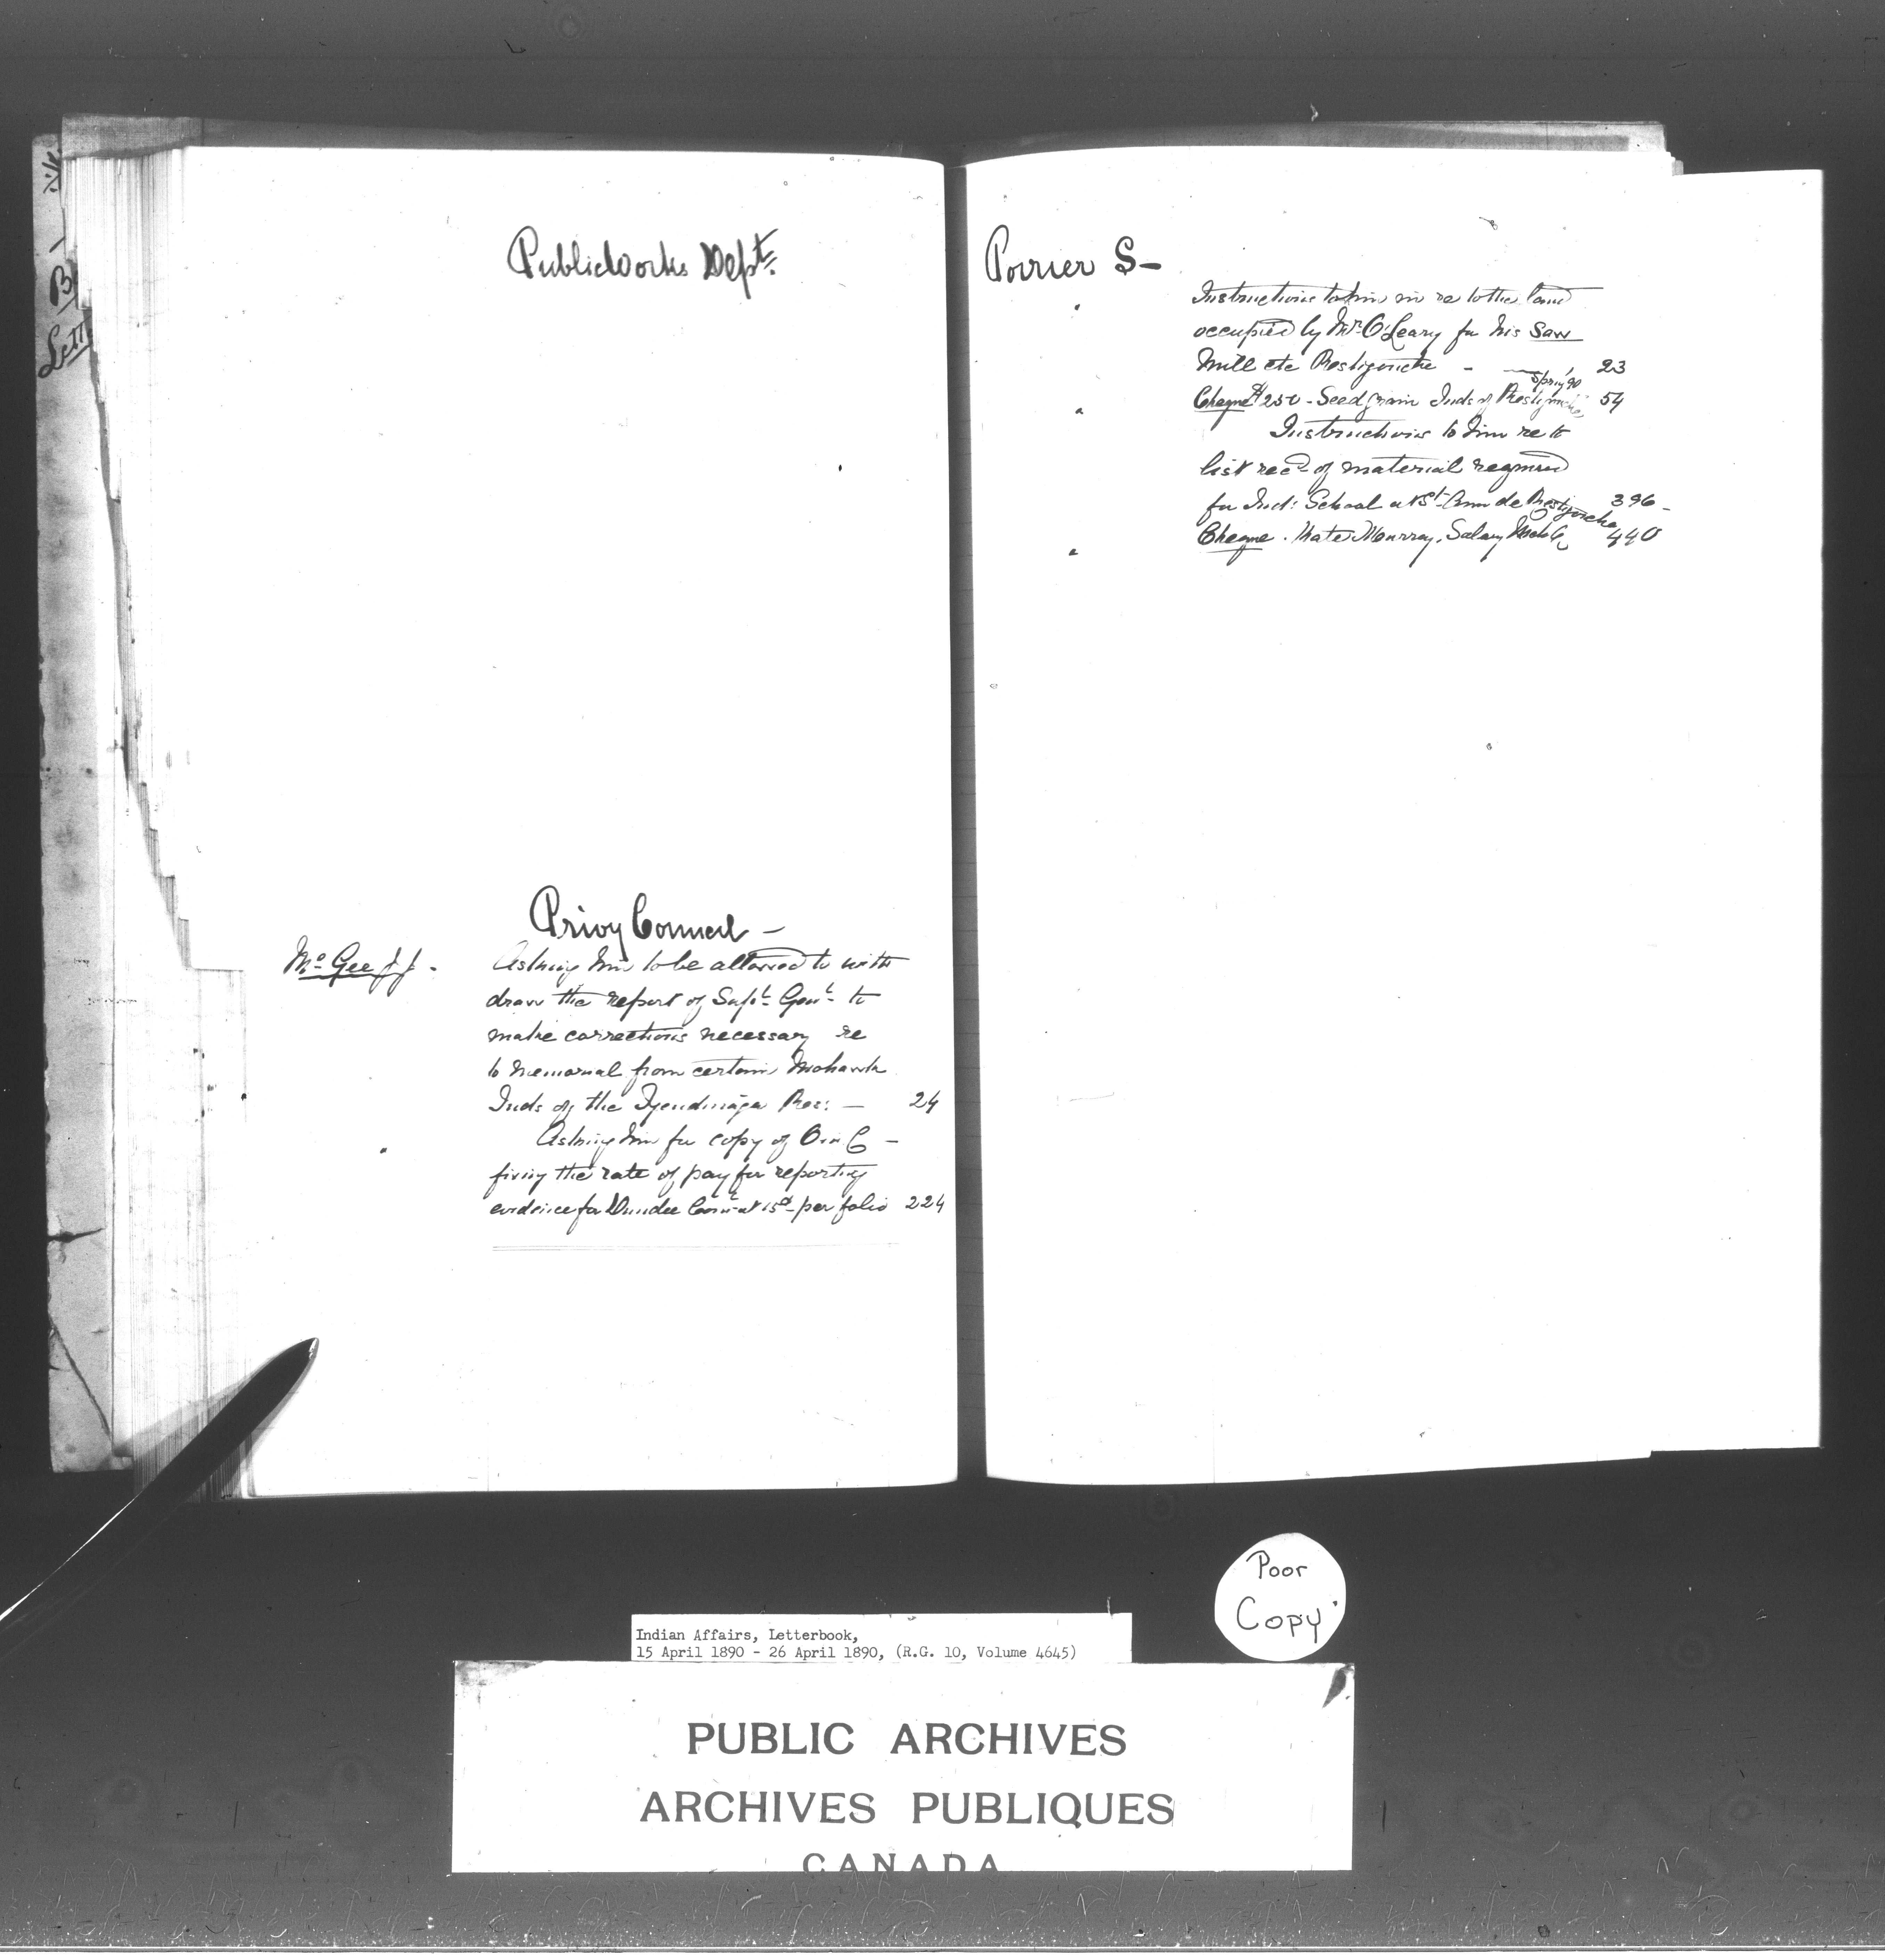 Public Works Dept.
Privy Council –
McGee J.J. -
Asking him to be allowed to with
draw the report of Supt. Genl. to
make corrections necessary re
to memorial from certain Mohawk
Inds of the Tyendinaga Res: — 24
Asking him for copy of O in C –
fixing the rate of pay for reporting
evidence for Dundee Comn at 15c per folio 224
Poirier S–
Instructions to him in re to the land
occupied by Mr. O'Leary for his Saw
Mill etc Restigouche - 23
Spring '90
Cheque $250 - Seed Grain Inds of Restigouche 54
Instructions to him re to
list recd of material required
for Ind: School at St. Anne de Restigouche 396 -
Cheque. Kate Mourray, Salary 440
B
Lett
Poor
Copy
Indian Affairs, Letterbook,
15 April 1890 - 26 April 1890, (R.G. 10, Volume 4645)
PUBLIC ARCHIVES
ARCHIVES PUBLIQUES
CANADA